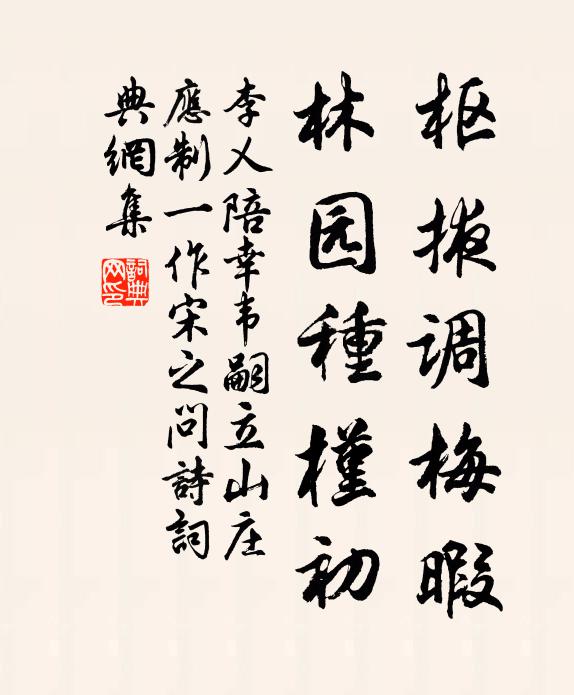 枢掖调梅暇
林园種槿初
李乂陪幸韦嗣立山庄
應制一作宋之问詩詞
典網集
詞典
网印